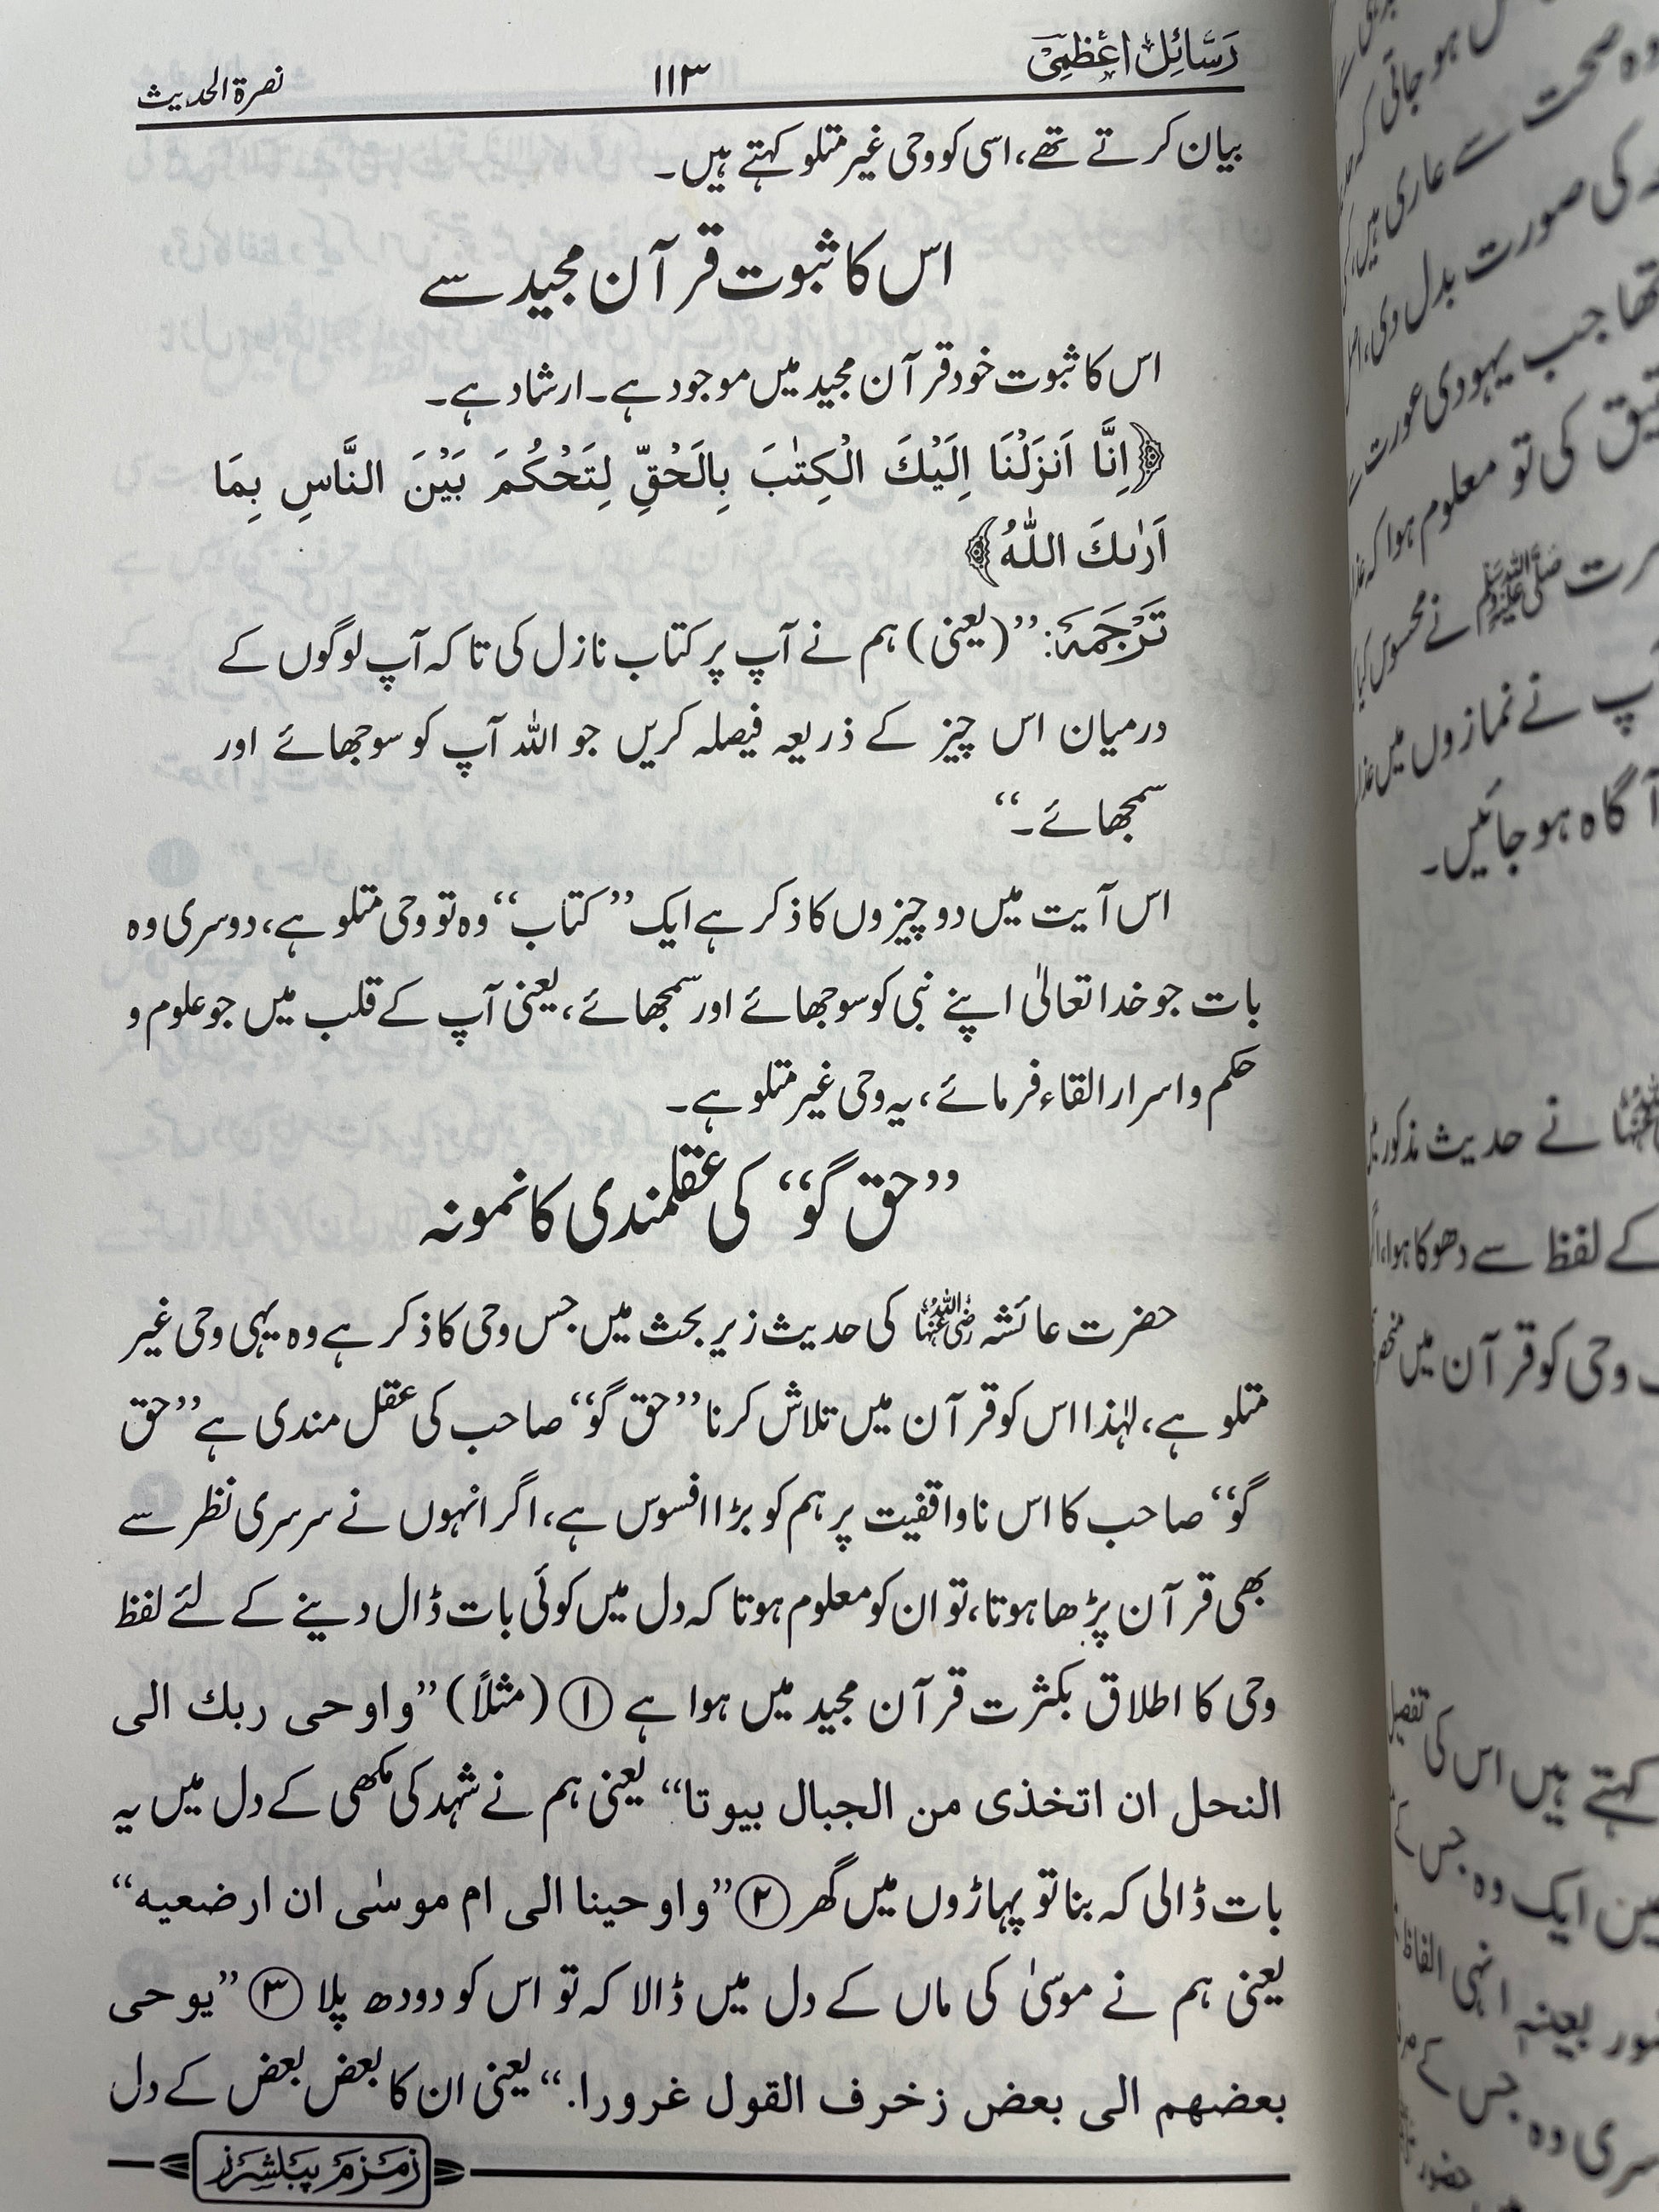 رَسَائِل اعْظَمِیّ
۱۱۳
نصرۃ الحدیث
بیان کرتے تھے، اسی کو وحی غیر متلو کہتے ہیں۔
اس کا ثبوت قرآن مجید سے
اس کا ثبوت خود قرآن مجید میں موجود ہے۔ ارشاد ہے۔
﴿اِنَّا اَنزَلْنَا اِلَیْكَ الْكِتٰبَ بِالْحَقِّ لِتَحْكُمَ بَیْنَ النَّاسِ بِمَا
اَرٰىكَ اللّٰهُ﴾
تَرْجَمَہ: ’’(یعنی) ہم نے آپ پر کتاب نازل کی تاکہ آپ لوگوں کے
درمیان اس چیز کے ذریعہ فیصلہ کریں جو اللہ آپ کو سوجھائے اور
سمجھائے۔‘‘
اس آیت میں دو چیزوں کا ذکر ہے ایک ’’کتاب‘‘ وہ تو وحی متلو ہے، دوسری وہ
بات جو خدا تعالیٰ اپنے نبی کو سوجھائے اور سمجھائے، یعنی آپ کے قلب میں جو علوم و
حکم و اسرار القاء فرمائے، یہ وحی غیر متلو ہے۔
’’حق گو‘‘ کی عقلمندی کا نمونہ
حضرت عائشہ رضی اللہ عنہا کی حدیث زیر بحث میں جس وحی کا ذکر ہے وہ یہی وحی غیر
متلو ہے، لہٰذا اس کو قرآن میں تلاش کرنا ’’حق گو‘‘ صاحب کی عقل مندی ہے ’’حق
گو‘‘ صاحب کا اس ناواقفیت پر ہم کو بڑا افسوس ہے، اگر انہوں نے سرسری نظر سے
بھی قرآن پڑھا ہوتا، تو ان کو معلوم ہوتا کہ دل میں کوئی بات ڈال دینے کے لئے لفظ
وحی کا اطلاق بکثرت قرآن مجید میں ہوا ہے ① (مثلاً) ’’واوحی ربك الی
النحل ان اتخذی من الجبال بیوتا‘‘ یعنی ہم نے شہد کی مکھی کے دل میں یہ
بات ڈالی کہ بنا تو پہاڑوں میں گھر ② ’’واوحینا الی ام موسٰی ان ارضعیه‘‘
یعنی ہم نے موسیٰ کی ماں کے دل میں ڈالا کہ تو اس کو دودھ پلا ③ ’’یوحی
بعضهم الی بعض زخرف القول غرورا.‘‘ یعنی ان کا بعض بعض کے دل
زمزم پبلشرز
ہو جاتی کہ
صحت سے عاری ہیں،
کی صورت بدل دی،
تھا جب یہودی عورت
کی تو معلوم ہوا کہ
صلی اللہ علیہ وسلم نے محسوس کیا
نے نمازوں میں
آگاہ ہو جائیں۔
نے حدیث مذکور
کے لفظ سے دھوکا ہوا،
وحی کو قرآن میں
کہتے ہیں اس کی تفصیل
ایک وہ جس کے
بعینہ انہی الفاظ
وہ جس کے
حضور